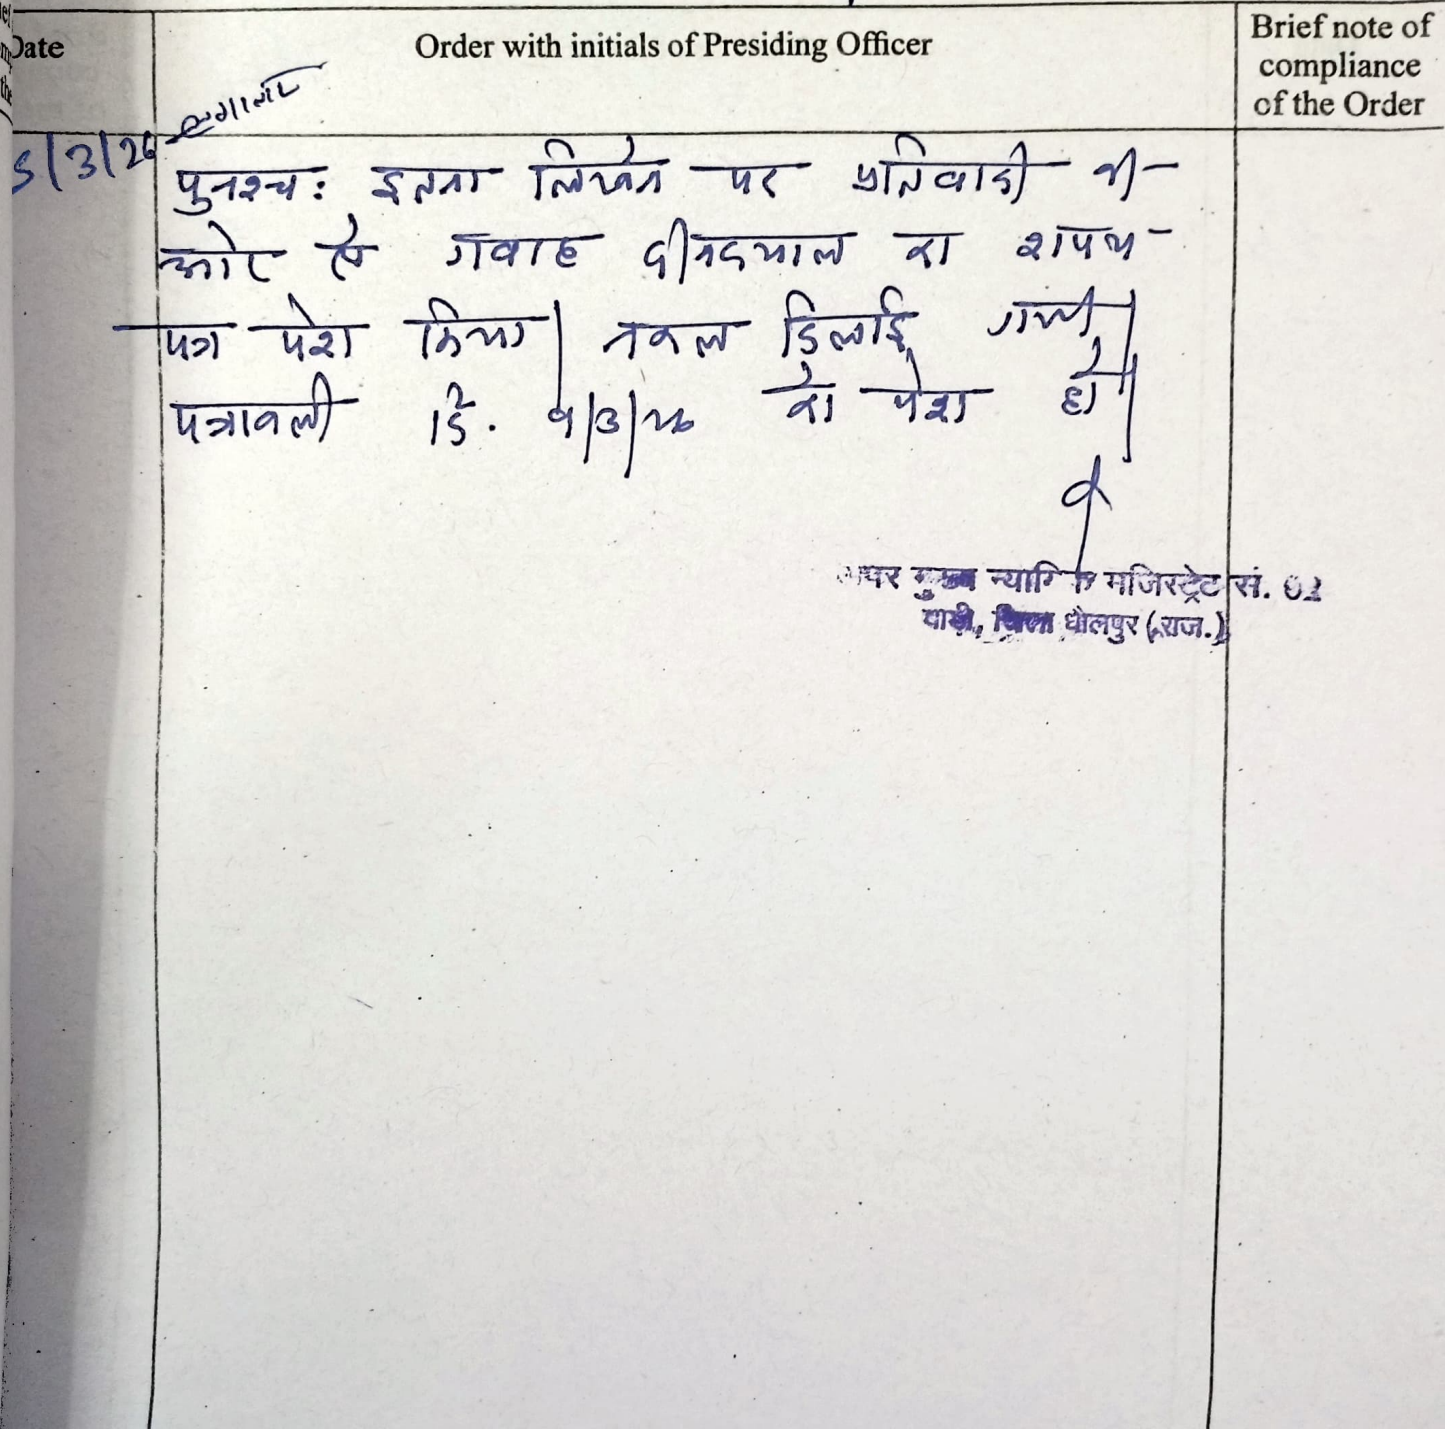 Date
Order with initials of Presiding Officer
Brief note of
compliance
of the Order
लगातार
5/3/26
पुनश्च: इतना लिखने पर प्रतिवादी की
ओर से गवाह दीनदयाल का शपथ
पत्र पेश किया। नकल दिलाई गयी।
पत्रावली दि. 9/3/26 को पेश हो।
अपर मुख्य न्यायिक मजिस्ट्रेट सं.
बाड़ी, जिला धौलपुर (राज.)